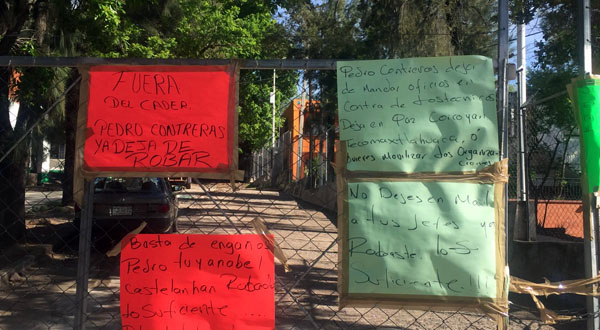 FUERA
DEL CADER.
PEDRO CONTRERAS
YA DEJA DE
ROBAR
Pedro Contreras dejar
de Mandar oficios en
Contra de
Deja en Paz Coicoyan
o
quieres Movilizar dos Organiza
ciones
No Dejes en Mal
a tus Jefes ya
Robaste lo S-
Suficiente !!!
Basta de engaños
Pedro tu y anabel
Castelan han Robado
lo Suficiente ....